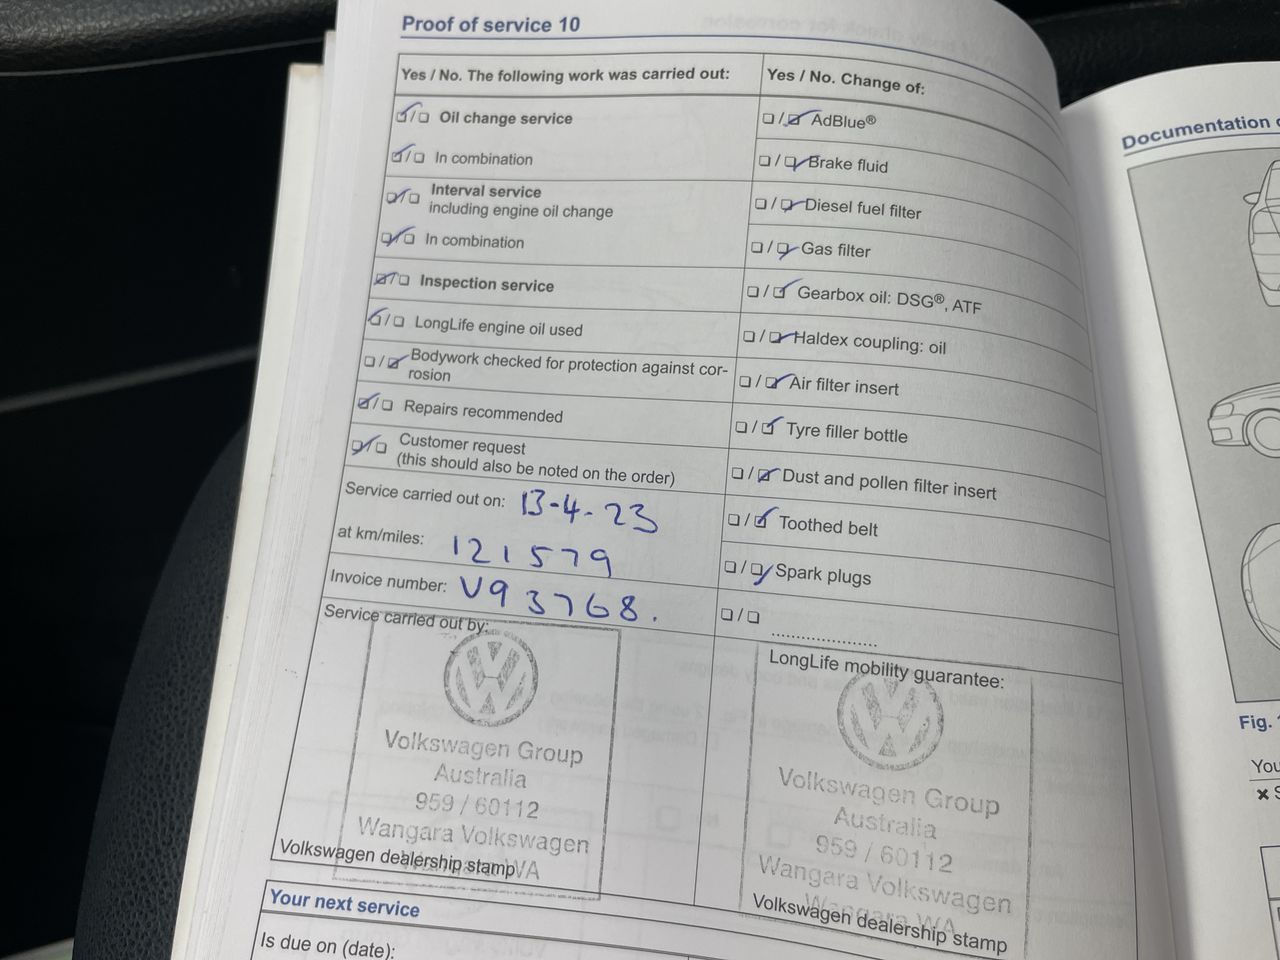 Proof of service 10
Yes / No. The following work was carried out:
☑/☐ Oil change service
☑/☐ In combination
☑/☐ Interval service
including engine oil change
☑/☐ In combination
☑/☐ Inspection service
☑/☐ LongLife engine oil used
☐/☑ Bodywork checked for protection against cor-
rosion
☑/☐ Repairs recommended
☑/☐ Customer request
(this should also be noted on the order)
Service carried out on: 13-4-23
at km/miles: 121579
Invoice number: V93768.
Service carried out by:
Volkswagen Group
Australia
959 / 60112
Wangara Volkswagen
WA
Volkswagen dealership stamp
Yes / No. Change of:
☐/☑ AdBlue®
☐/☑ Brake fluid
☐/☑ Diesel fuel filter
☐/☑ Gas filter
☐/☑ Gearbox oil: DSG®, ATF
☐/☑ Haldex coupling: oil
☐/☑ Air filter insert
☐/☑ Tyre filler bottle
☐/☑ Dust and pollen filter insert
☐/☑ Toothed belt
☐/☑ Spark plugs
☐/☐ .....................
LongLife mobility guarantee:
Volkswagen Group
Australia
959 / 60112
Wangara Volkswagen
Wangara WA
Volkswagen dealership stamp
Your next service
Is due on (date):
Documentation
Fig.
You